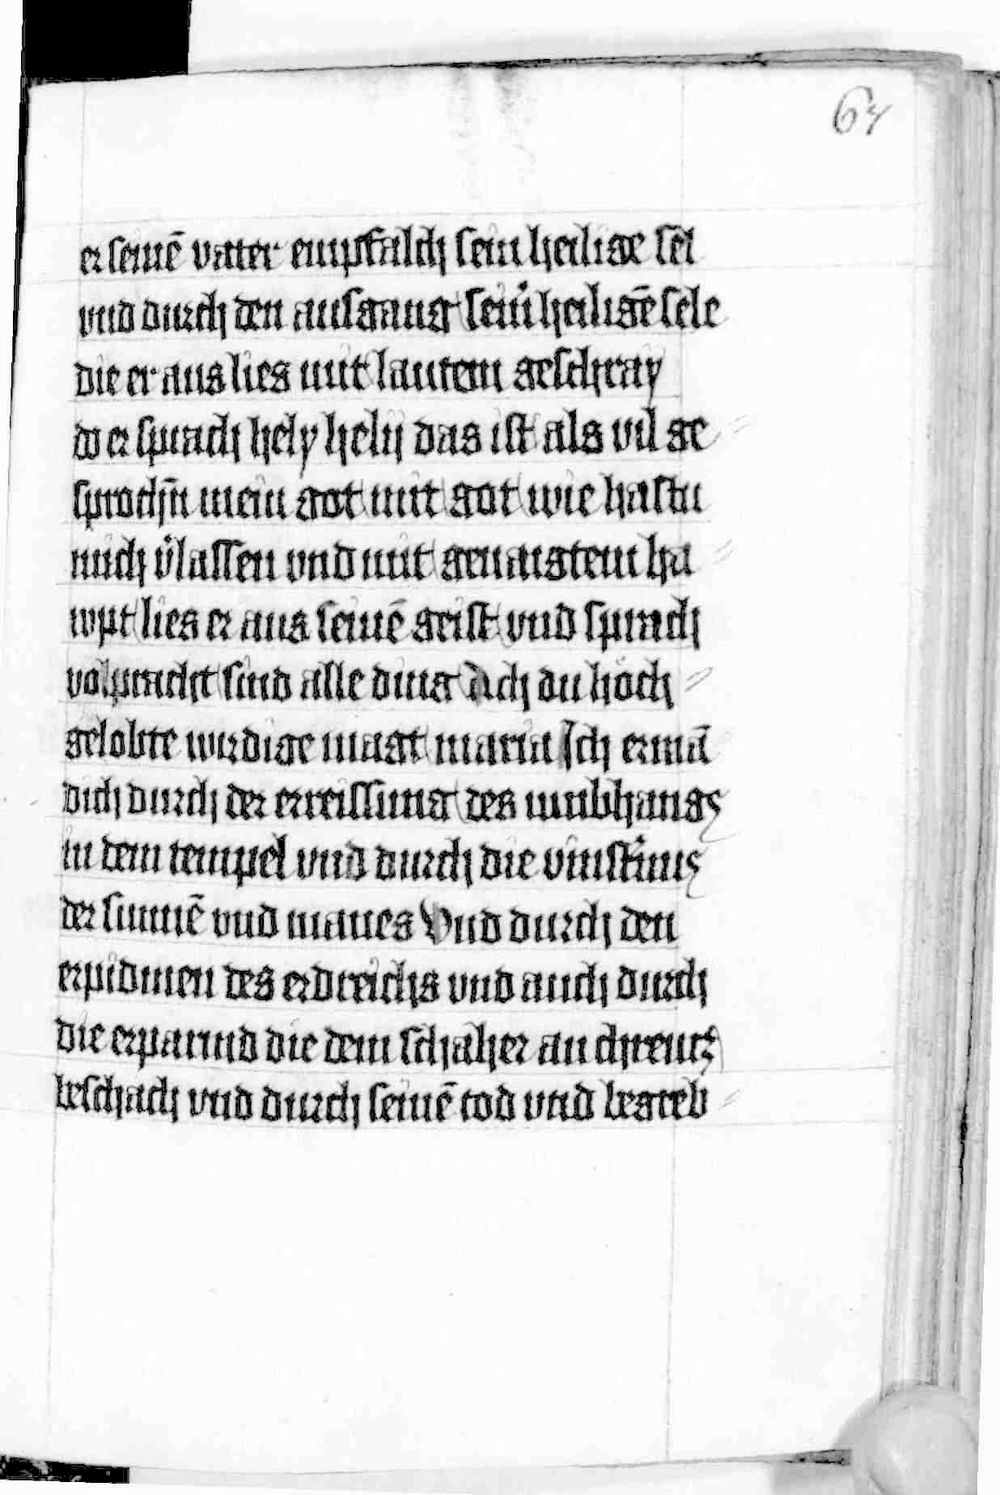 64
er seinē vatter empfalch sein heilige sel
vnd durch den ausgang seinˀ heiligē sele
die er aus lies mit lautem geschray
do er sprach hely hely das ist als vil ge
sprochn̄ mein got mit got wie hastu
mich v̓lassen vnd mit genaigtem ha
wpt lies er aus seinē geist vnd sprach
volpracht sind alle ding Ach du hoch
gelobte wirdige magt maria Ich ermā
dich durch der erreissung des umbhangs
in dem tempel vnd durch die vinstˀnus
der sunnē vnd manes Vnd durch den
erpidmen des erdreichs vnd auch durch
die erparmd die dem schaher an chreutz
beschach vnd durch seinē tod vnd begreb